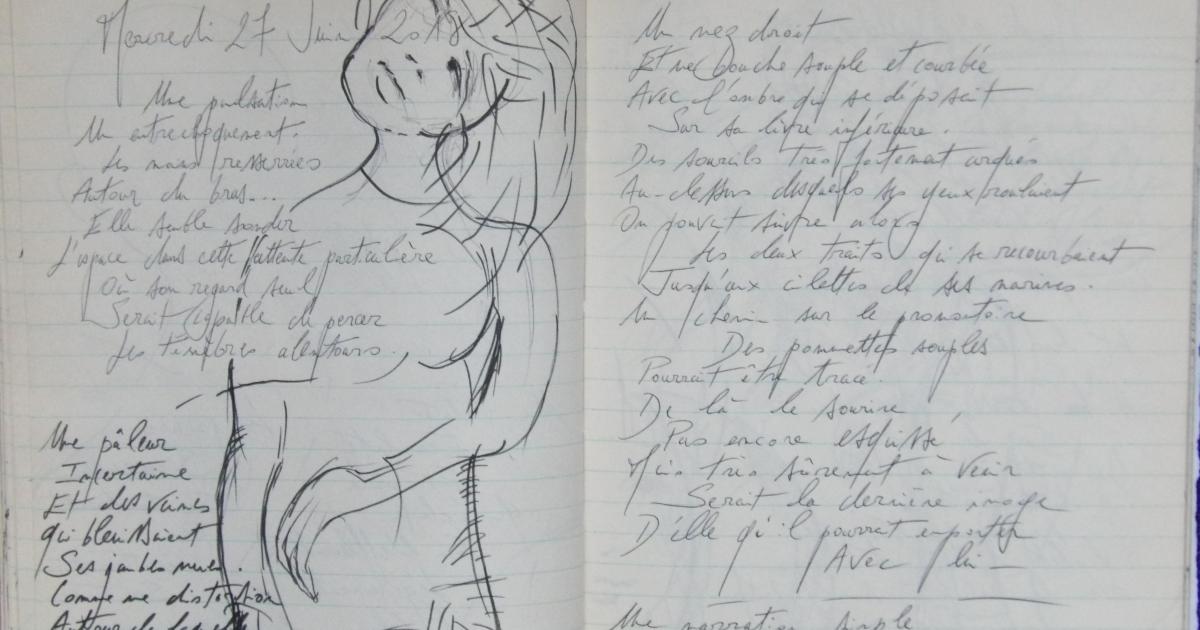 Mercredi 27 Juin 2018
Une pulsation
Un entrechoquement.
Les mains resserrées
Autour du bras...
Elle semble sonder
L'espace dans cette attente particulière
Où son regard seul
Serait capable de percer
Les ténèbres alentours.
Une pâleur
Incertaine
Et des veines
qui bleuissaient
Ses jambes nues.
Comme une distortion
Autour de
Un nez droit
Et une bouche souple et courbée
Avec l'ombre qui se déposait
Sur sa lèvre inférieure.
Des sourcils très fortement arqués
Au-dessus desquels ses yeux
On pouvait suivre alors
Les deux traits qui se recourbaient
Jusqu'aux ailettes de ses narines.
Un chemin sur le promontoire
Des pommettes souples
Pourrait être tracé.
De là le sourire,
Pas encore esquissé
Mais très sûrement à venir
Serait la dernière image
D'elle qu'il pourrait emporter
Avec lui —
Une narration simple